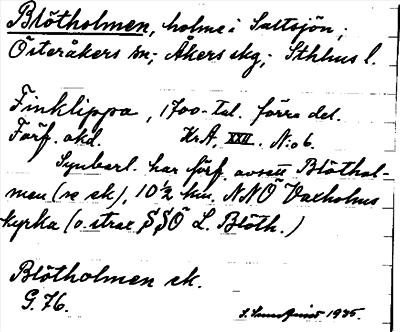 Blötholmen, holme i Saltsjön,
Österåkers sn; Åkers skg; Sthlms l.
Finklippa, 1700-tal. förra del.
Förf. okd. KrA, XXII. N:o 6.
Synbarl. har förf. avsett Blöthol-
men (se sk), 10 1/2 km. NNÖ Vaxholms
kyrka (o. strax SSÖ L. Blöth.)
Blötholmen sk.
G. 76.
1935